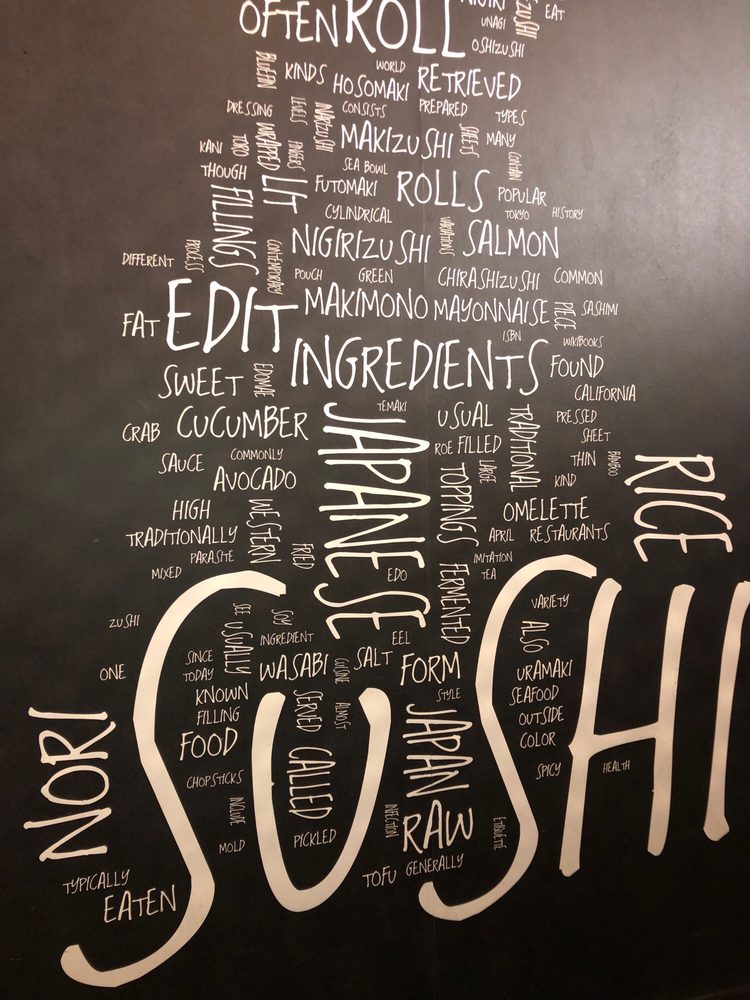 NIGIRI
ZUSHI
EAT
UNAGI
OFTEN ROLL
OSHIZUSHI
BLUEFIN
KINDS
WORLD
HOSOMAKI
RETRIEVED
DRESSING
LEVELS
INARIZUSHI
CONSISTS
PREPARED
TYPES
WRAPPED
MAKIZUSHI
SHEETS
MANY
KANI
TORO
FINGERS
SEA BOWL
CONTAIN
THOUGH
LIT
FUTOMAKI
ROLLS
POPULAR
FILLINGS
CYLINDRICAL
TOKYO
HISTORY
NIGIRIZUSHI
VARIATIONS
SALMON
DIFFERENT
PROCESS
CONTEMPORARY
POUCH
GREEN
CHIRASHIZUSHI
COMMON
FAT
EDIT
MAKIMONO
MAYONNAISE
PIECE
SASHIMI
ISBN
WIKIBOOKS
INGREDIENTS
FOUND
SWEET
EDOMAE
CALIFORNIA
TEMAKI
CRAB
CUCUMBER
JAPANESE
USUAL
TRADITIONAL
PRESSED
SHEET
ROE
FILLED
SAUCE
COMMONLY
AVOCADO
TOPPINGS
LARGE
THIN
BAMBOO
KIND
RICE
HIGH
WESTERN
OMELETTE
TRADITIONALLY
APRIL
RESTAURANTS
PARASITE
FRIED
IMITATION
MIXED
EDO
FERMENTED
TEA
SUSHI
ZUSHI
SEE
USUALLY
SOY
INGREDIENT
EEL
VARIETY
ALSO
ONE
SINCE
TODAY
WASABI
CUISINE
SALT
FORM
URAMAKI
KNOWN
SERVED
ALMOST
STYLE
SEAFOOD
NORI
FILLING
JAPAN
OUTSIDE
FOOD
CALLED
COLOR
CHOPSTICKS
SPICY
HEALTH
INCLUDE
MOLD
PICKLED
INFECTION
RAW
ETIQUETTE
TYPICALLY
TOFU
GENERALLY
EATEN